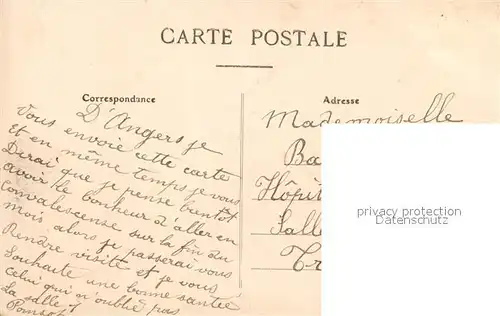 CARTE POSTALE
Correspondance
D'Angers je
vous envoie cette carte
et en même temps je vous
Dirai que je pense bientôt
avoir le bonheur d'aller en
convalescense sur la fin du
mois alors je passerai vous
Rendre visite et je vous
souhaite une bonne santée
celui qui n'oublie pas
La salle 7
Adresse
Mademoiselle
Ba
Hôpit
Salle
Tr
privacy protection
Datenschutz